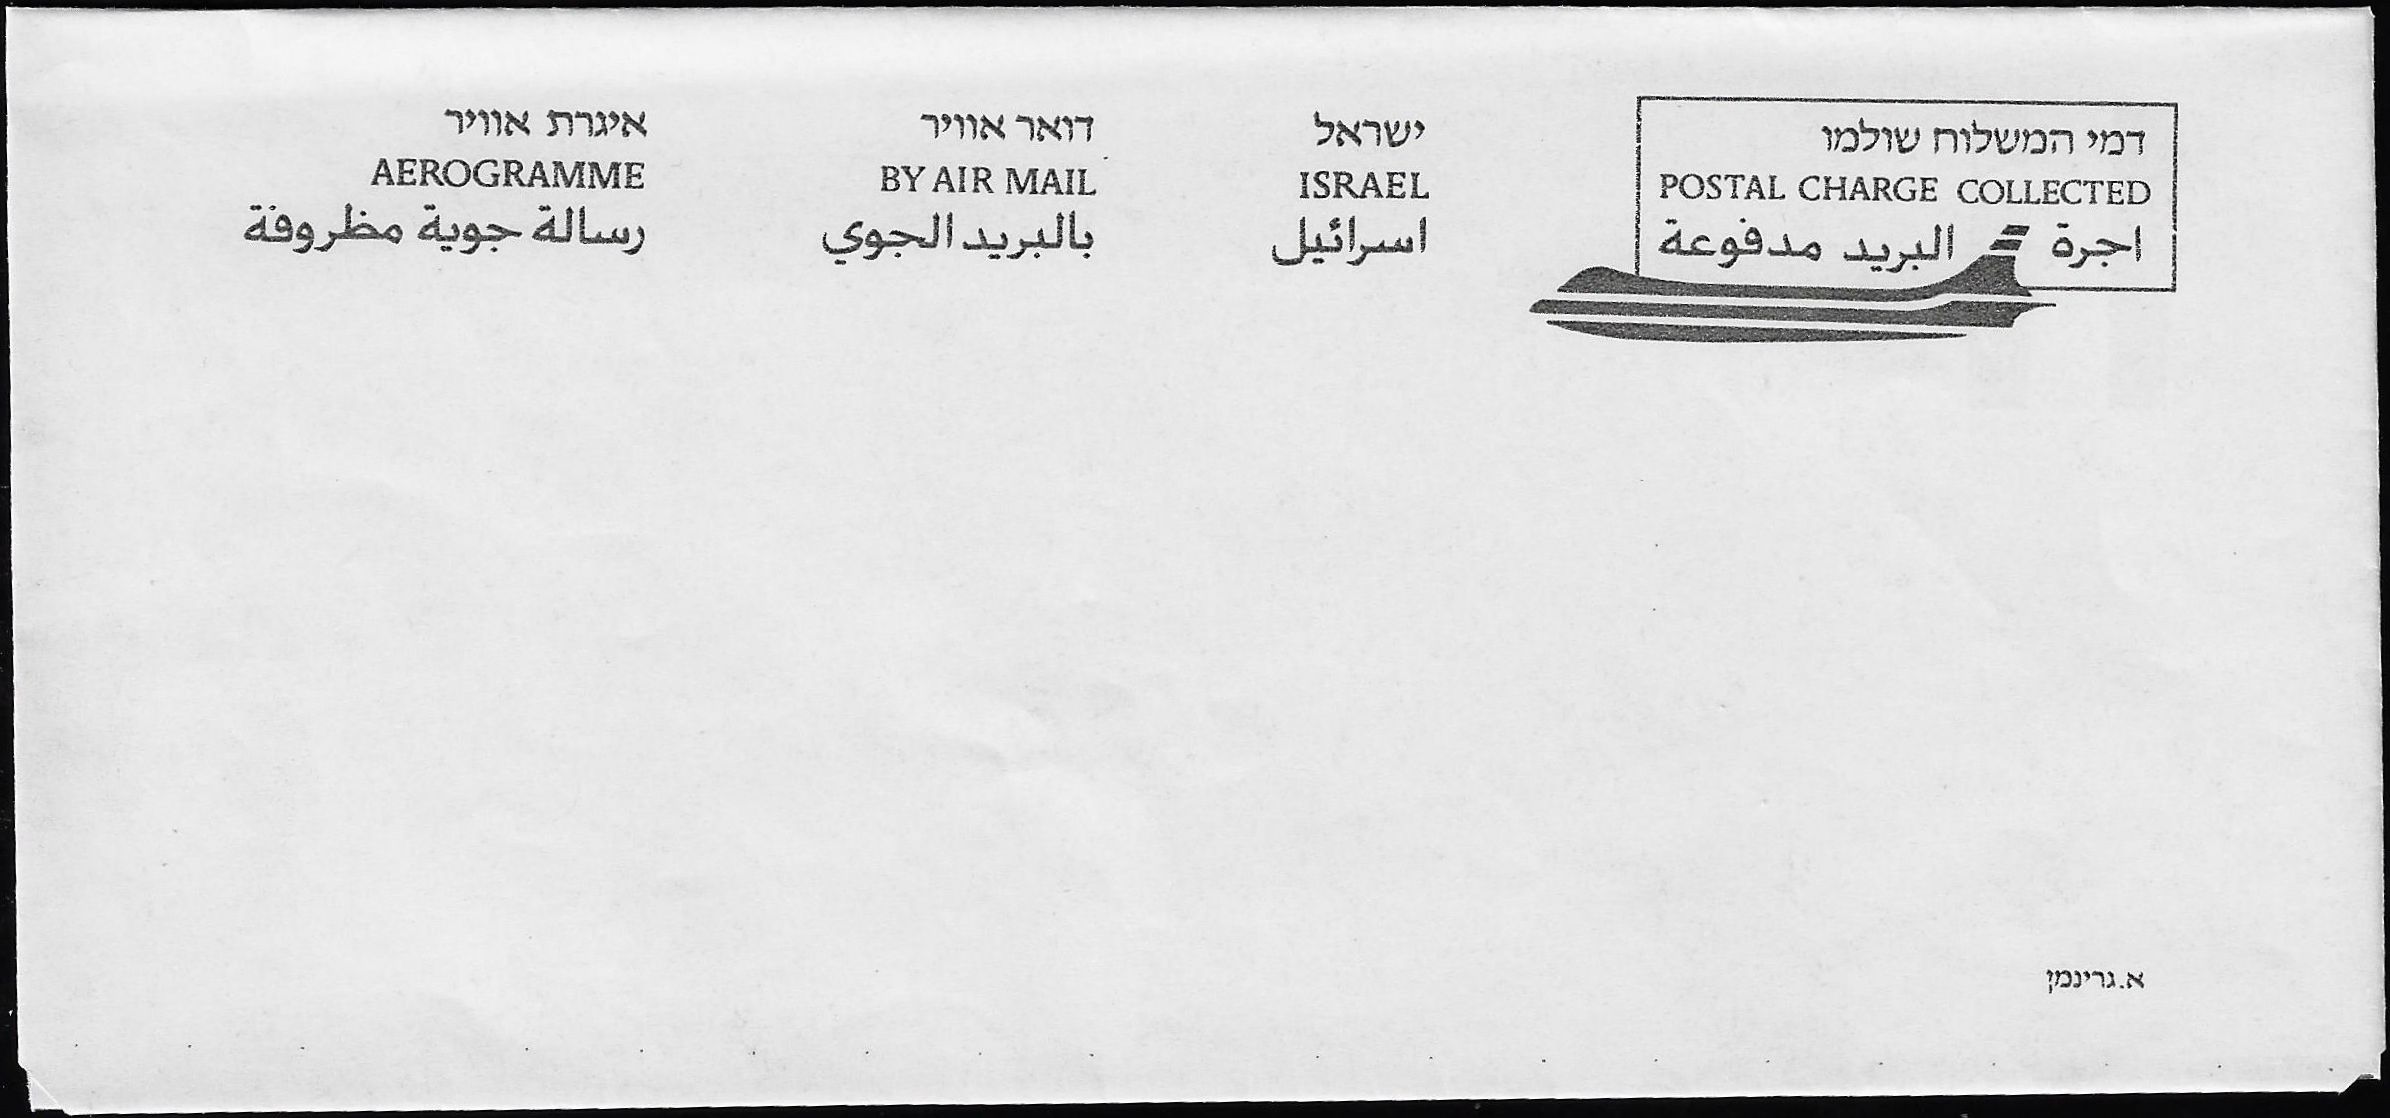 איגרת אוויר
AEROGRAMME
رسالة جوية مظروفة
דואר אוויר
BY AIR MAIL
بالبريد الجوي
ישראל
ISRAEL
اسرائيل
דמי המשלוח שולמו
POSTAL CHARGE COLLECTED
اجرة البريد مدفوعة
א.גרינמן